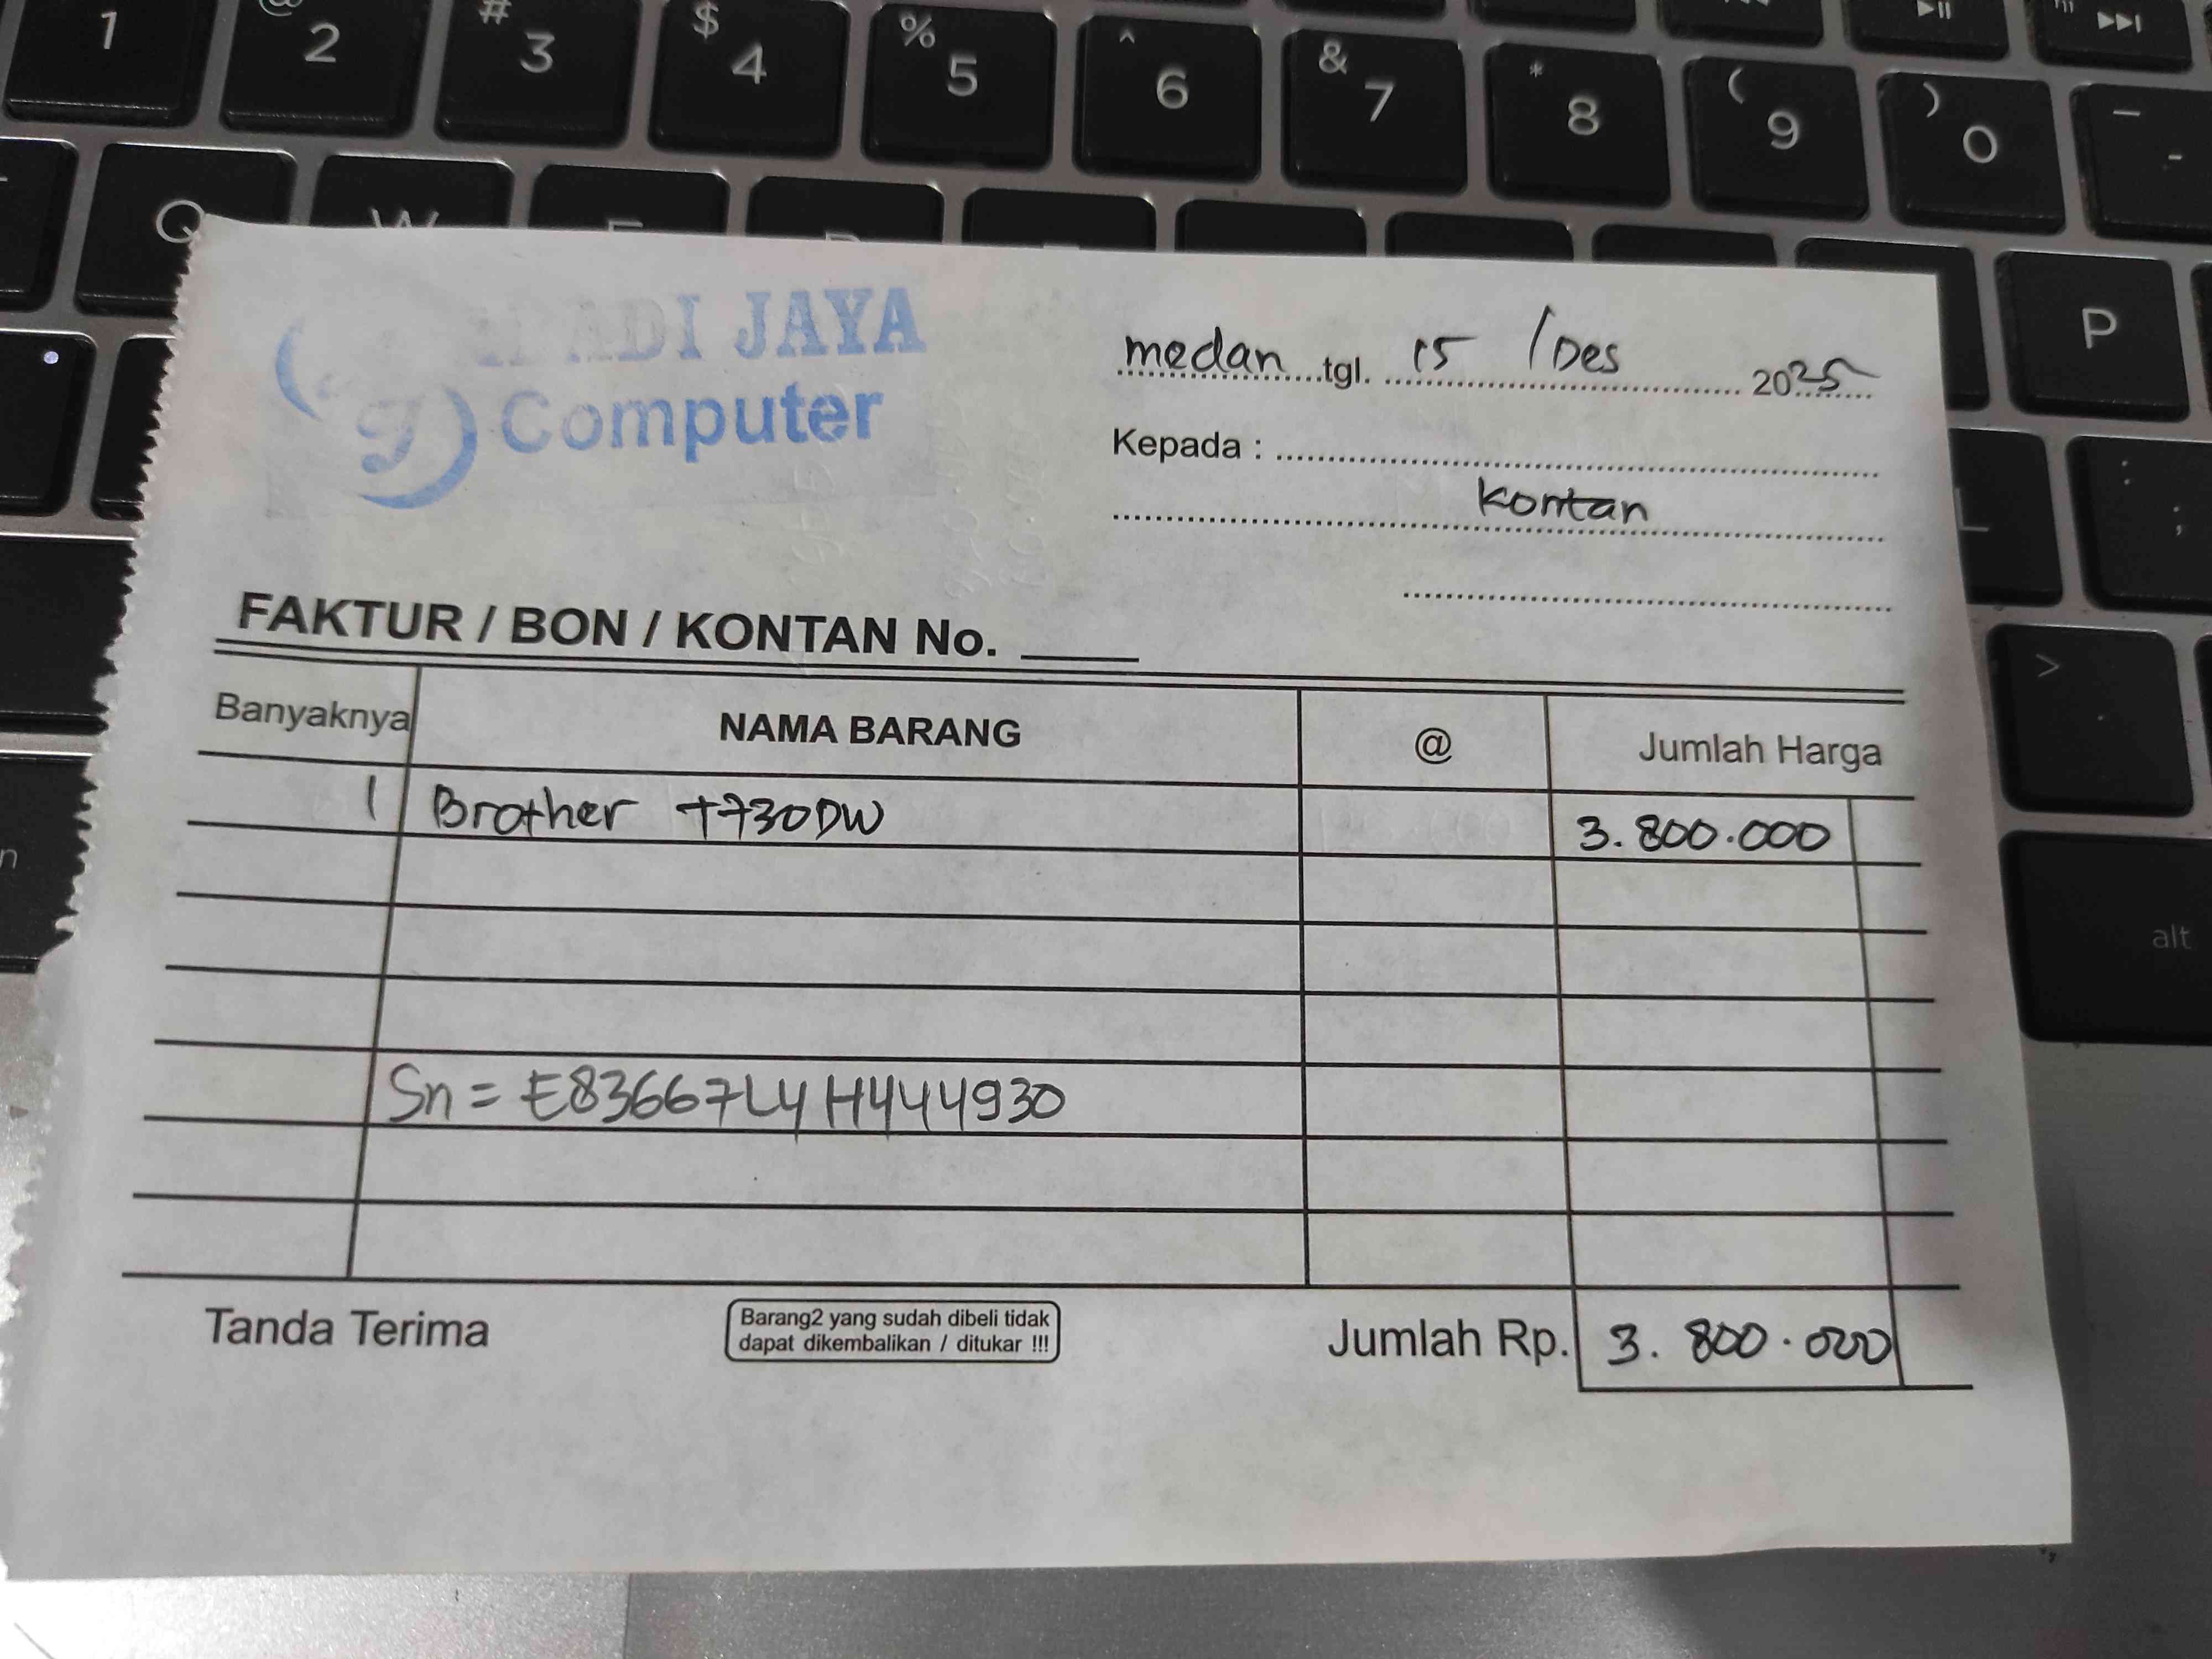 1 @ 2 # 3 $ 4 % 5 ^ 6 & 7 * 8 ( 9 ) 0 - 
Q W P
ADI JAYA
Computer
medan tgl. 15 / Des 2025
Kepada :
Kontan
FAKTUR / BON / KONTAN No.
Banyaknya NAMA BARANG @ Jumlah Harga
1 Brother T730DW 3.800.000
Sn = E83667L4H444930
Tanda Terima
Barang2 yang sudah dibeli tidak
dapat dikembalikan / ditukar !!!
Jumlah Rp. 3.800.000
L : ;
> .
alt
n